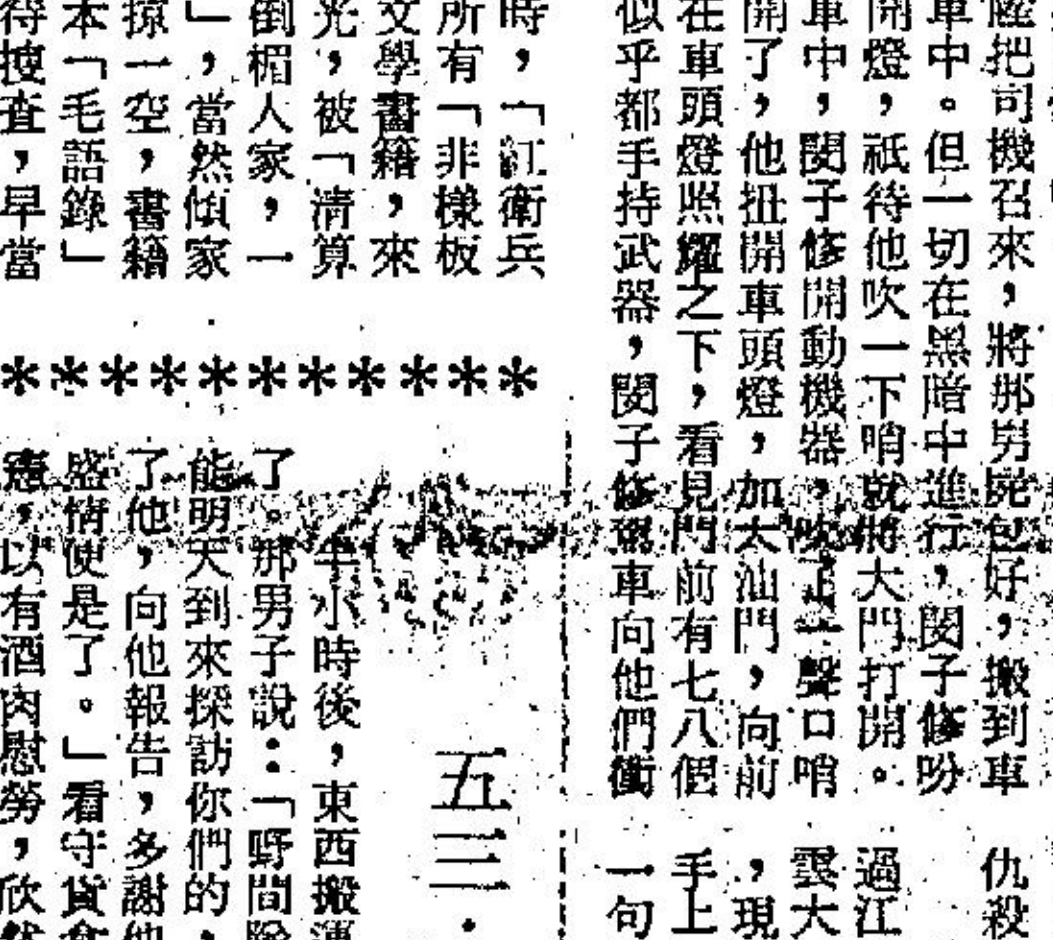 把司機召來，將那男屍包好，搬到車
車中。但一切在黑暗中進行，閔子修吩
開燈，祇待他吹一下哨就將大門打開。
車中，閔子修開動機器，吹一聲口哨
開了，他扭開車頭燈，加大油門，向前
在車頭燈照耀之下，看見門前有七八個
似乎都手持武器，閔子修車向他們衝
仇殺
過江
雲大
，現
手上
一句
時，「紅衛兵
所有「非樣板
文學書籍，來
光，被「清算
倒楣人家，一
」，當然傾家
掠一空，書籍
本「毛語錄」
待搜查，早當
＊＊＊＊＊＊＊＊＊＊＊
五三．
半小時後，東西搬運
了。那男子說：「野間
能明天到來探訪你們的，
了他，向他報告，多謝他
盛情便是了。」看守貨倉
，以有酒肉慰勞，欣然